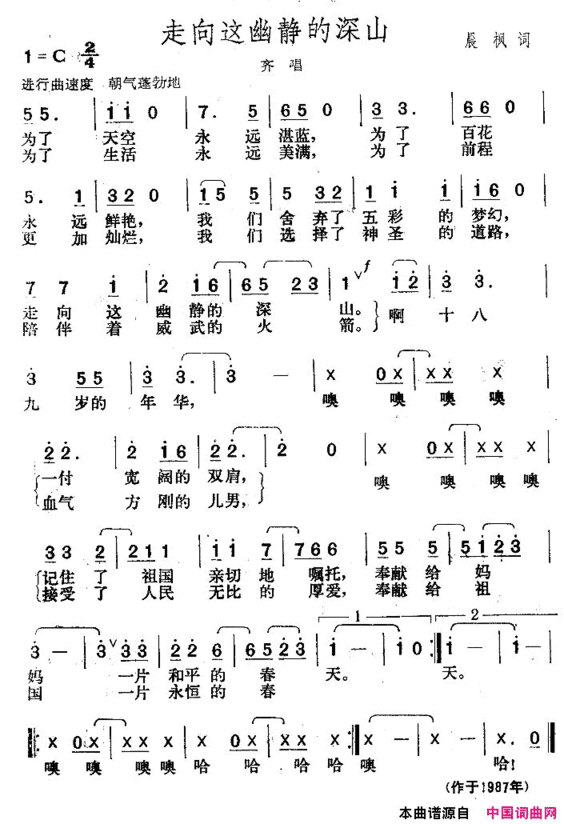 走向这幽静的深山
晨枫 词
1=C 2/4
齐唱
进行曲速度 朝气蓬勃地
5 5. | i i 0 | 7. 5 | 6 5 0 | 3 3. | 6 6 0 |
为了 天空 永 远 湛蓝, 为 了 百花
为了 生活 永 远 美满, 为 了 前程
5. 1 | 3 2 0 | 1 5 5 | 5 3 2 | i i | i 6 0 |
永 远 鲜艳, 我 们 舍 弃了 五彩 的 梦幻,
更 加 灿烂, 我 们 选 择了 神圣 的 道路,
7 7 i | 2 i 6 | 6 5 2 3 | 1 f | i 2 | 3 3. |
走 向 这 幽 静的 深 山。 啊 十 八
陪 伴 着 威 武的 火 箭。
3 5 5 | 3 3. | 3 — | x 0 x | x x x |
九 岁的 年 华, 噢 噢 噢 噢
2 2. | 2 i 6 | 2 2. | 2 0 | x 0 x | x x x |
一付 宽 阔的 双肩, 噢 噢 噢 噢
血气 方 刚的 儿男,
3 3 2 | 2 1 1 | i i 7 | 7 6 6 | 5 5 5 | 5 i 2 3 |
记住 了 祖国 亲切 地 嘱托, 奉献 给 妈
接受 了 人民 无比 的 厚爱, 奉献 给 祖
3 — | 3 3 3 | 2 2 6 | 6 5 2 3 | i — | i 0 :| i — | i — |
1 2
妈 一片 和平 的 春 天。 天。
国 一片 永恒 的 春
x 0 x | x x x | x 0 x | x x x | x 0 :| x. 0 ||
噢 噢 噢噢 哈 哈 哈哈 噢 哈!
(作于1987年)
本曲谱源自 中国词曲网